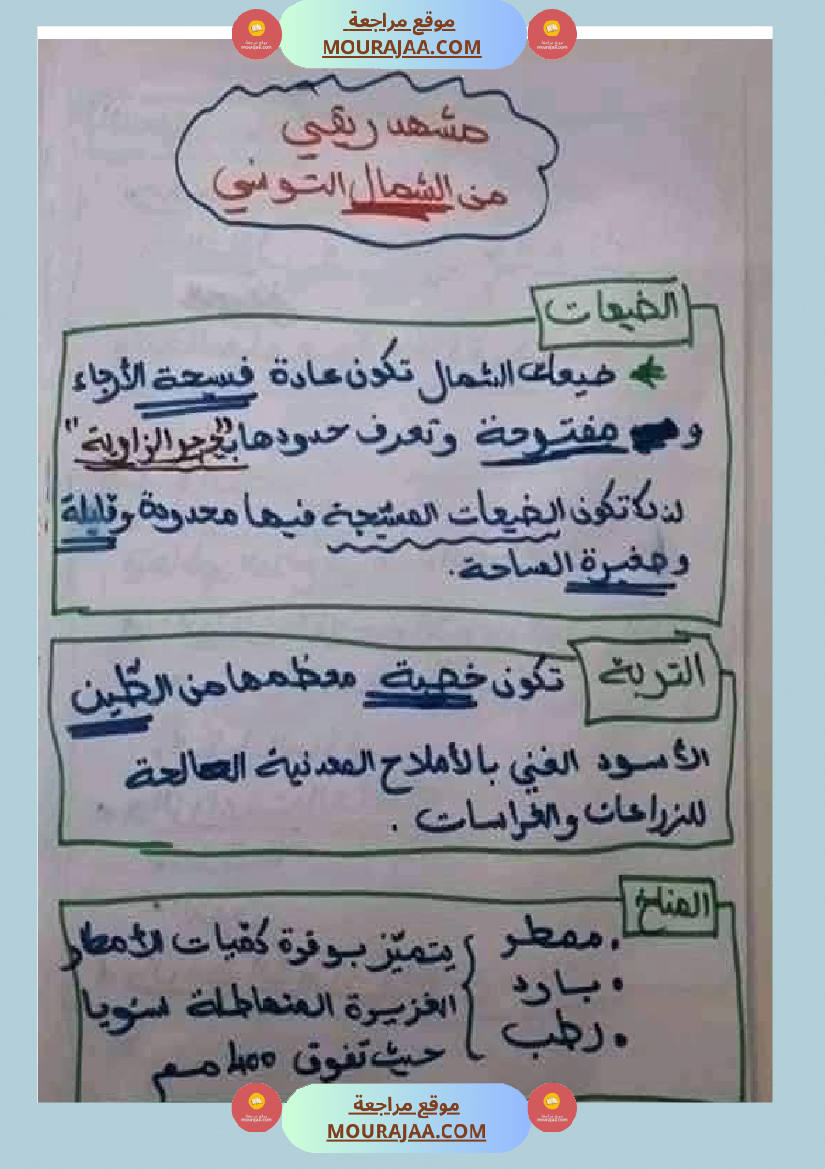 موقع مراجعة
MOURAJAA.COM
مشهد ريفي
من الشمال التونسي
الضيعات
ضيعات الشمال تكون عادة فسحة الأرجاء
و مفتوحة وتعرف حدودها بـ"حجر الزاوية"
لذلك تكون الضيعات المسيّجة فيها محدودة وقليلة
وصغيرة المساحة.
التربة
تكون خصبة معظمها من الطّين
الأسود الغني بالأملاح المعدنية الصالحة
للزراعات والغراسات .
المناخ
. ممطر
. بارد
. رطب
يتميّز بوفرة كمّيات الأمطار
الغزيرة المتهاطلة سنويا
حيث تفوق 400 مم
موقع مراجعة
MOURAJAA.COM